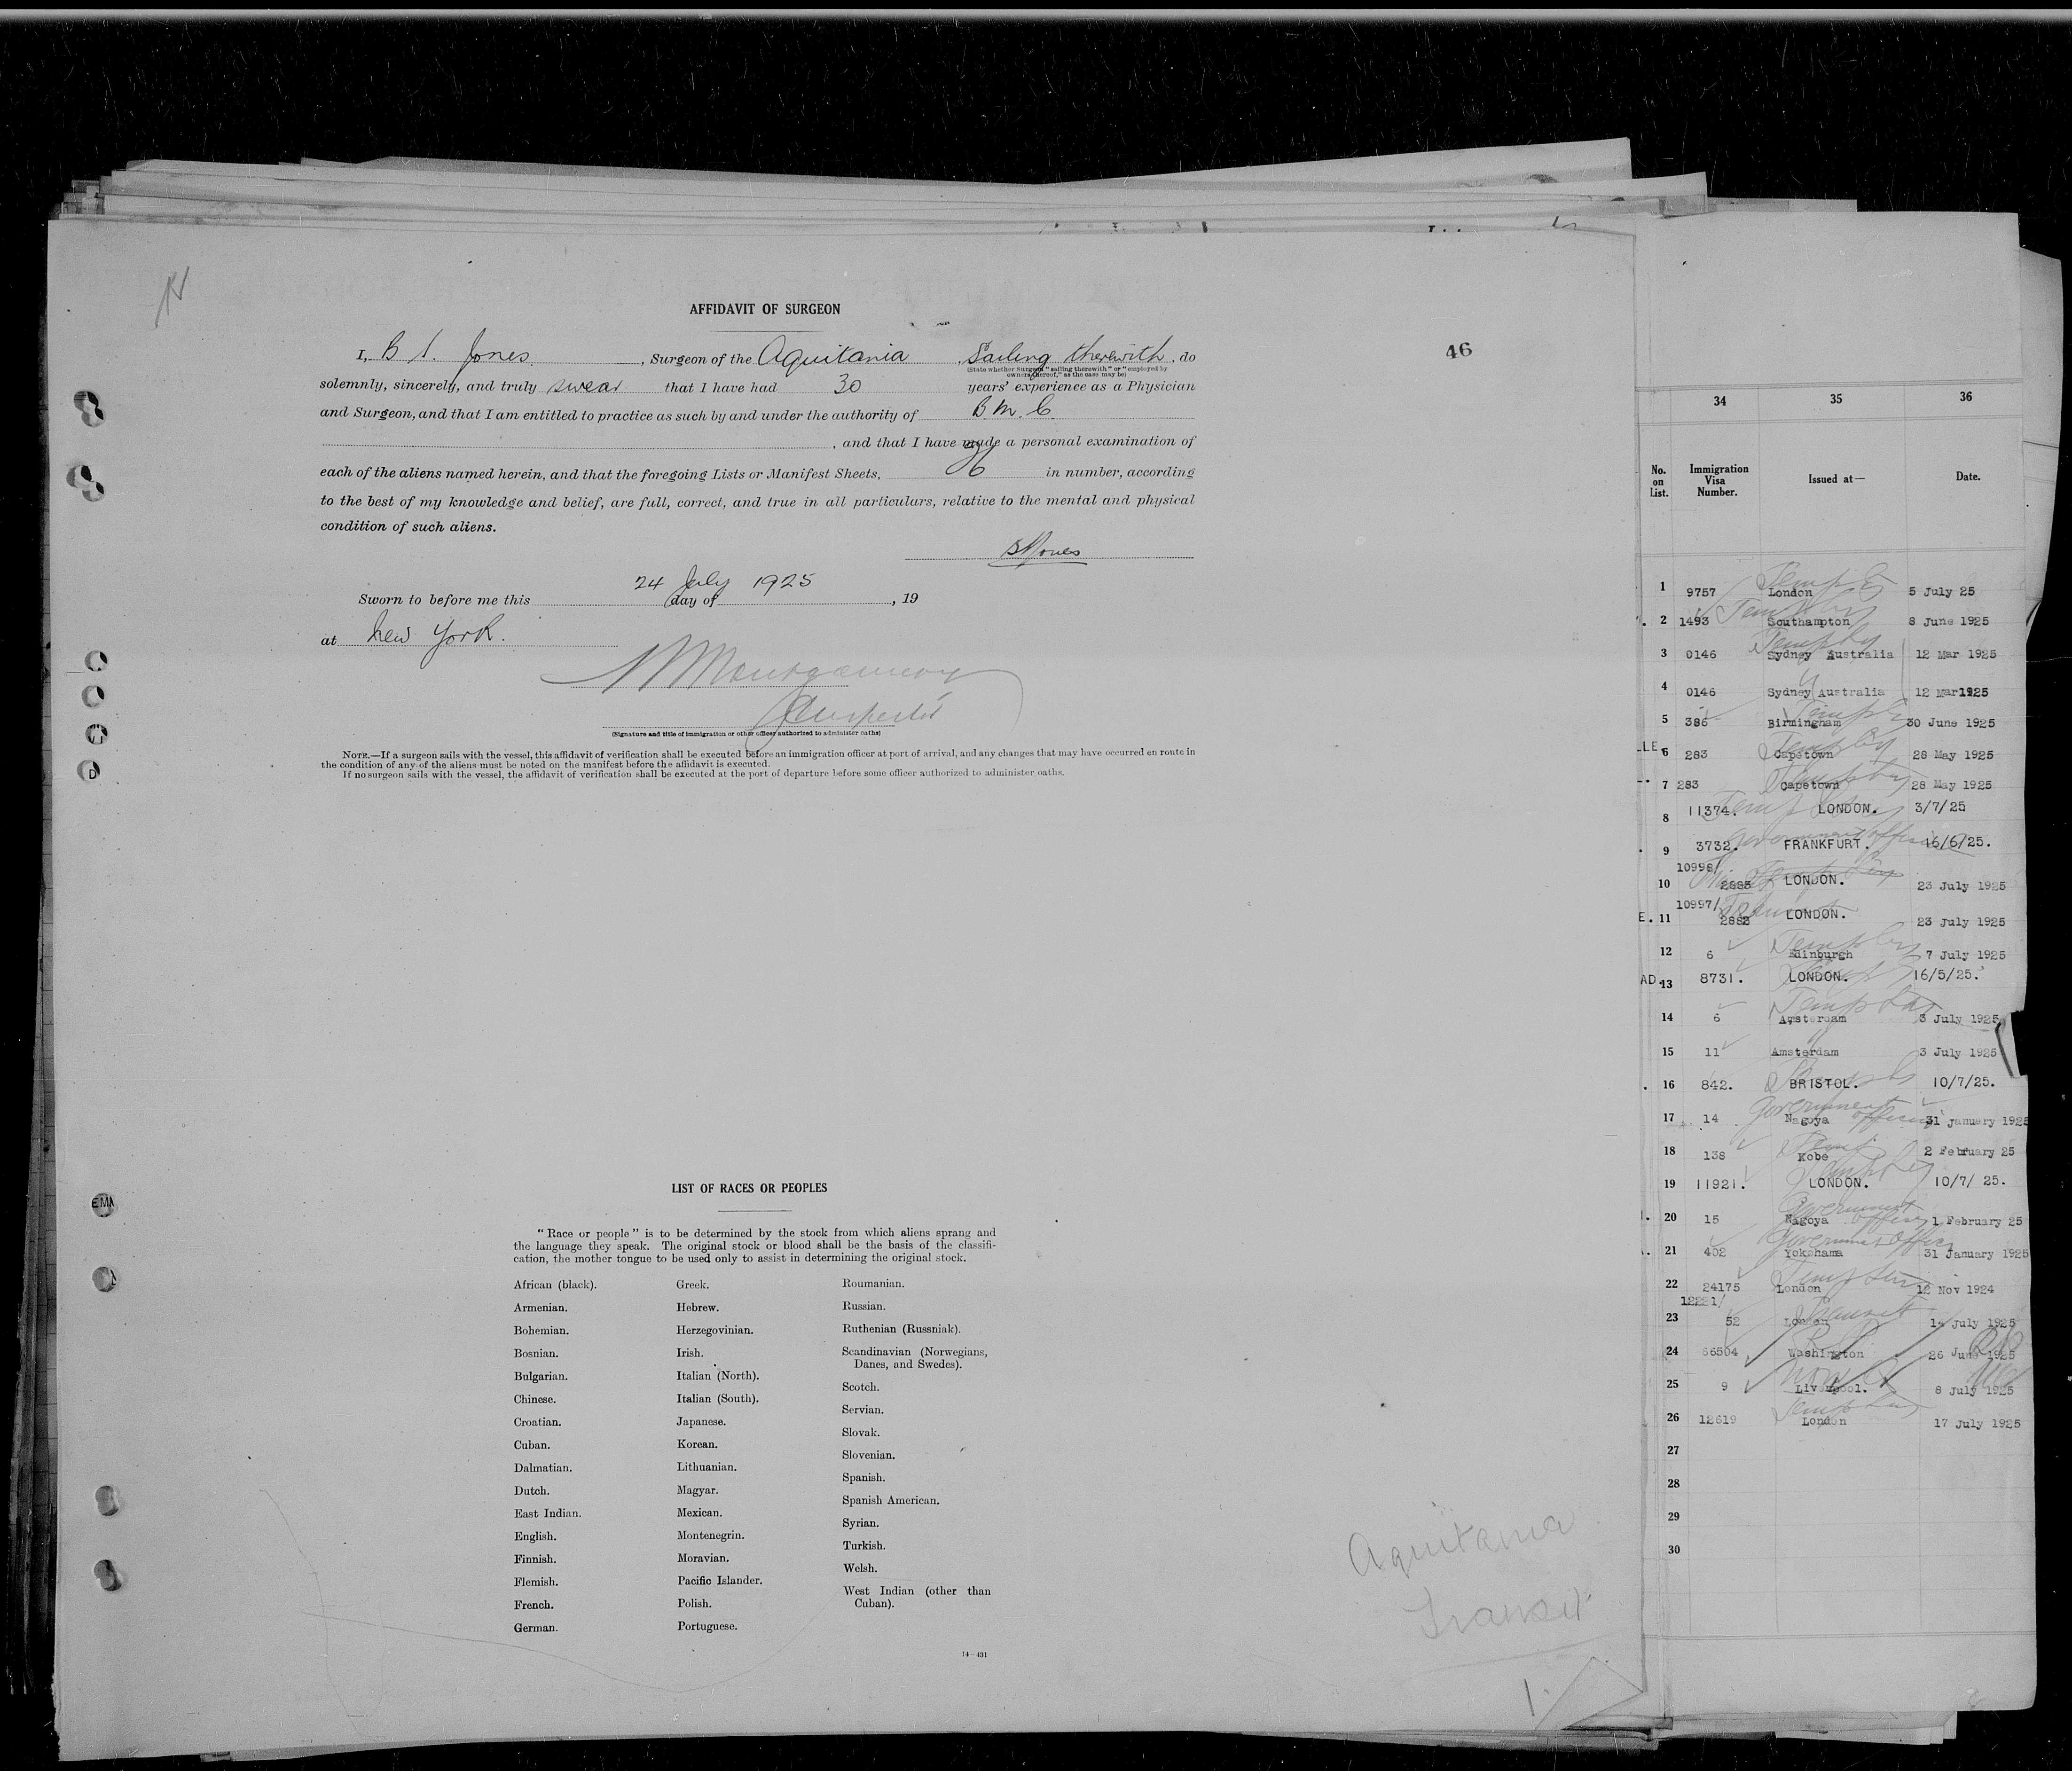 46
AFFIDAVIT OF SURGEON
I, B. S. Jones, Surgeon of the Aquitania, Sailing therewith, do
(State whether Surgeon "sailing therewith" or "employed by
owners thereof," as the case may be)
solemnly, sincerely, and truly swear that I have had 30 years' experience as a Physician
and Surgeon, and that I am entitled to practice as such by and under the authority of B. M. C.
, and that I have made a personal examination of
each of the aliens named herein, and that the foregoing Lists or Manifest Sheets, in number, according
to the best of my knowledge and belief, are full, correct, and true in all particulars, relative to the mental and physical
condition of such aliens.
BSJones
Sworn to before me this 24 July 1925 day of , 19
at New York.
Montgomery
Inspector
(Signature and title of immigration or other officer authorized to administer oaths)
NOTE.—If a surgeon sails with the vessel, this affidavit of verification shall be executed before an immigration officer at port of arrival, and any changes that may have occurred en route in
the condition of any of the aliens must be noted on the manifest before the affidavit is executed.
If no surgeon sails with the vessel, the affidavit of verification shall be executed at the port of departure before some officer authorized to administer oaths.
LIST OF RACES OR PEOPLES
"Race or people" is to be determined by the stock from which aliens sprang and
the language they speak. The original stock or blood shall be the basis of the classifi-
cation, the mother tongue to be used only to assist in determining the original stock.
African (black).
Armenian.
Bohemian.
Bosnian.
Bulgarian.
Chinese.
Croatian.
Cuban.
Dalmatian.
Dutch.
East Indian.
English.
Finnish.
Flemish.
French.
German.
Greek.
Hebrew.
Herzegovinian.
Irish.
Italian (North).
Italian (South).
Japanese.
Korean.
Lithuanian.
Magyar.
Mexican.
Montenegrin.
Moravian.
Pacific Islander.
Polish.
Portuguese.
Roumanian.
Russian.
Ruthenian (Russniak).
Scandinavian (Norwegians,
Danes, and Swedes).
Scotch.
Servian.
Slovak.
Slovenian.
Spanish.
Spanish American.
Syrian.
Turkish.
Welsh.
West Indian (other than
Cuban).
14—431
Aquitania
Transit
1.
34 35 36
No. on List. Immigration Visa Number. Issued at— Date.
1 9757 London 5 July 25
2 1493 Southampton 8 June 1925
3 0146 Sydney Australia 12 Mar 1925
4 0146 Sydney Australia 12 Mar 1925
5 386 Birmingham 30 June 1925
LLE. 6 283 Capetown 28 May 1925
7 283 Capetown 28 May 1925
8 11374. LONDON. 3/7/25
9 3732. FRANKFURT. 16/6/25.
10 10998/ 2885 LONDON. 23 July 1925
E. 11 10997/ 2882 LONDON. 23 July 1925
12 6 Edinburgh 7 July 1925
AD. 13 8731. LONDON. 16/5/25.
14 6 Amsterdam 3 July 1925
15 11 Amsterdam 3 July 1925
16 842. BRISTOL. 10/7/25.
17 14 Nagoya 31 January 1925
18 138 Kobe 2 February 25
19 11921. LONDON. 10/7/ 25.
20 15 Nagoya 1 February 25
21 402 Yokohama 31 January 1925
22 24175 London 12 Nov 1924
23 12221/ 52 London 14 July 1925
24 66504 Washington 26 June 1925
25 9 Liverpool. 8 July 1925
26 12619 London 17 July 1925
27
28
29
30